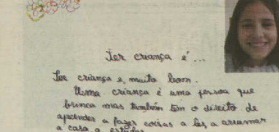 Ser criança é...
Ser criança é muito bom.
Uma criança é uma pessoa que
brinca mas também tem o direito de
aprender a fazer coisas a ler, a arrumar
a casa a estudar